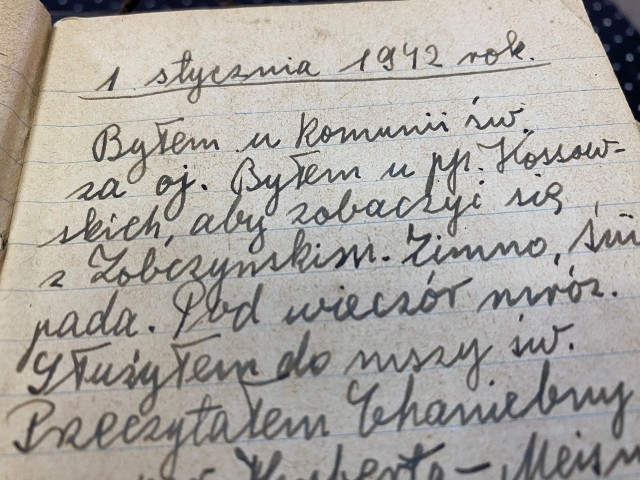 1 stycznia 1942 rok.
Byłem u Komunii św.
za oj. Byłem u pp. Kossow-
skich, aby zobaczyć się
z Zobczyńskim. Zimno, śni
pada. Pod wieczór mróz.
Służyłem do mszy św.
Przeczytałem Chaniebny
Huberta - Meisn